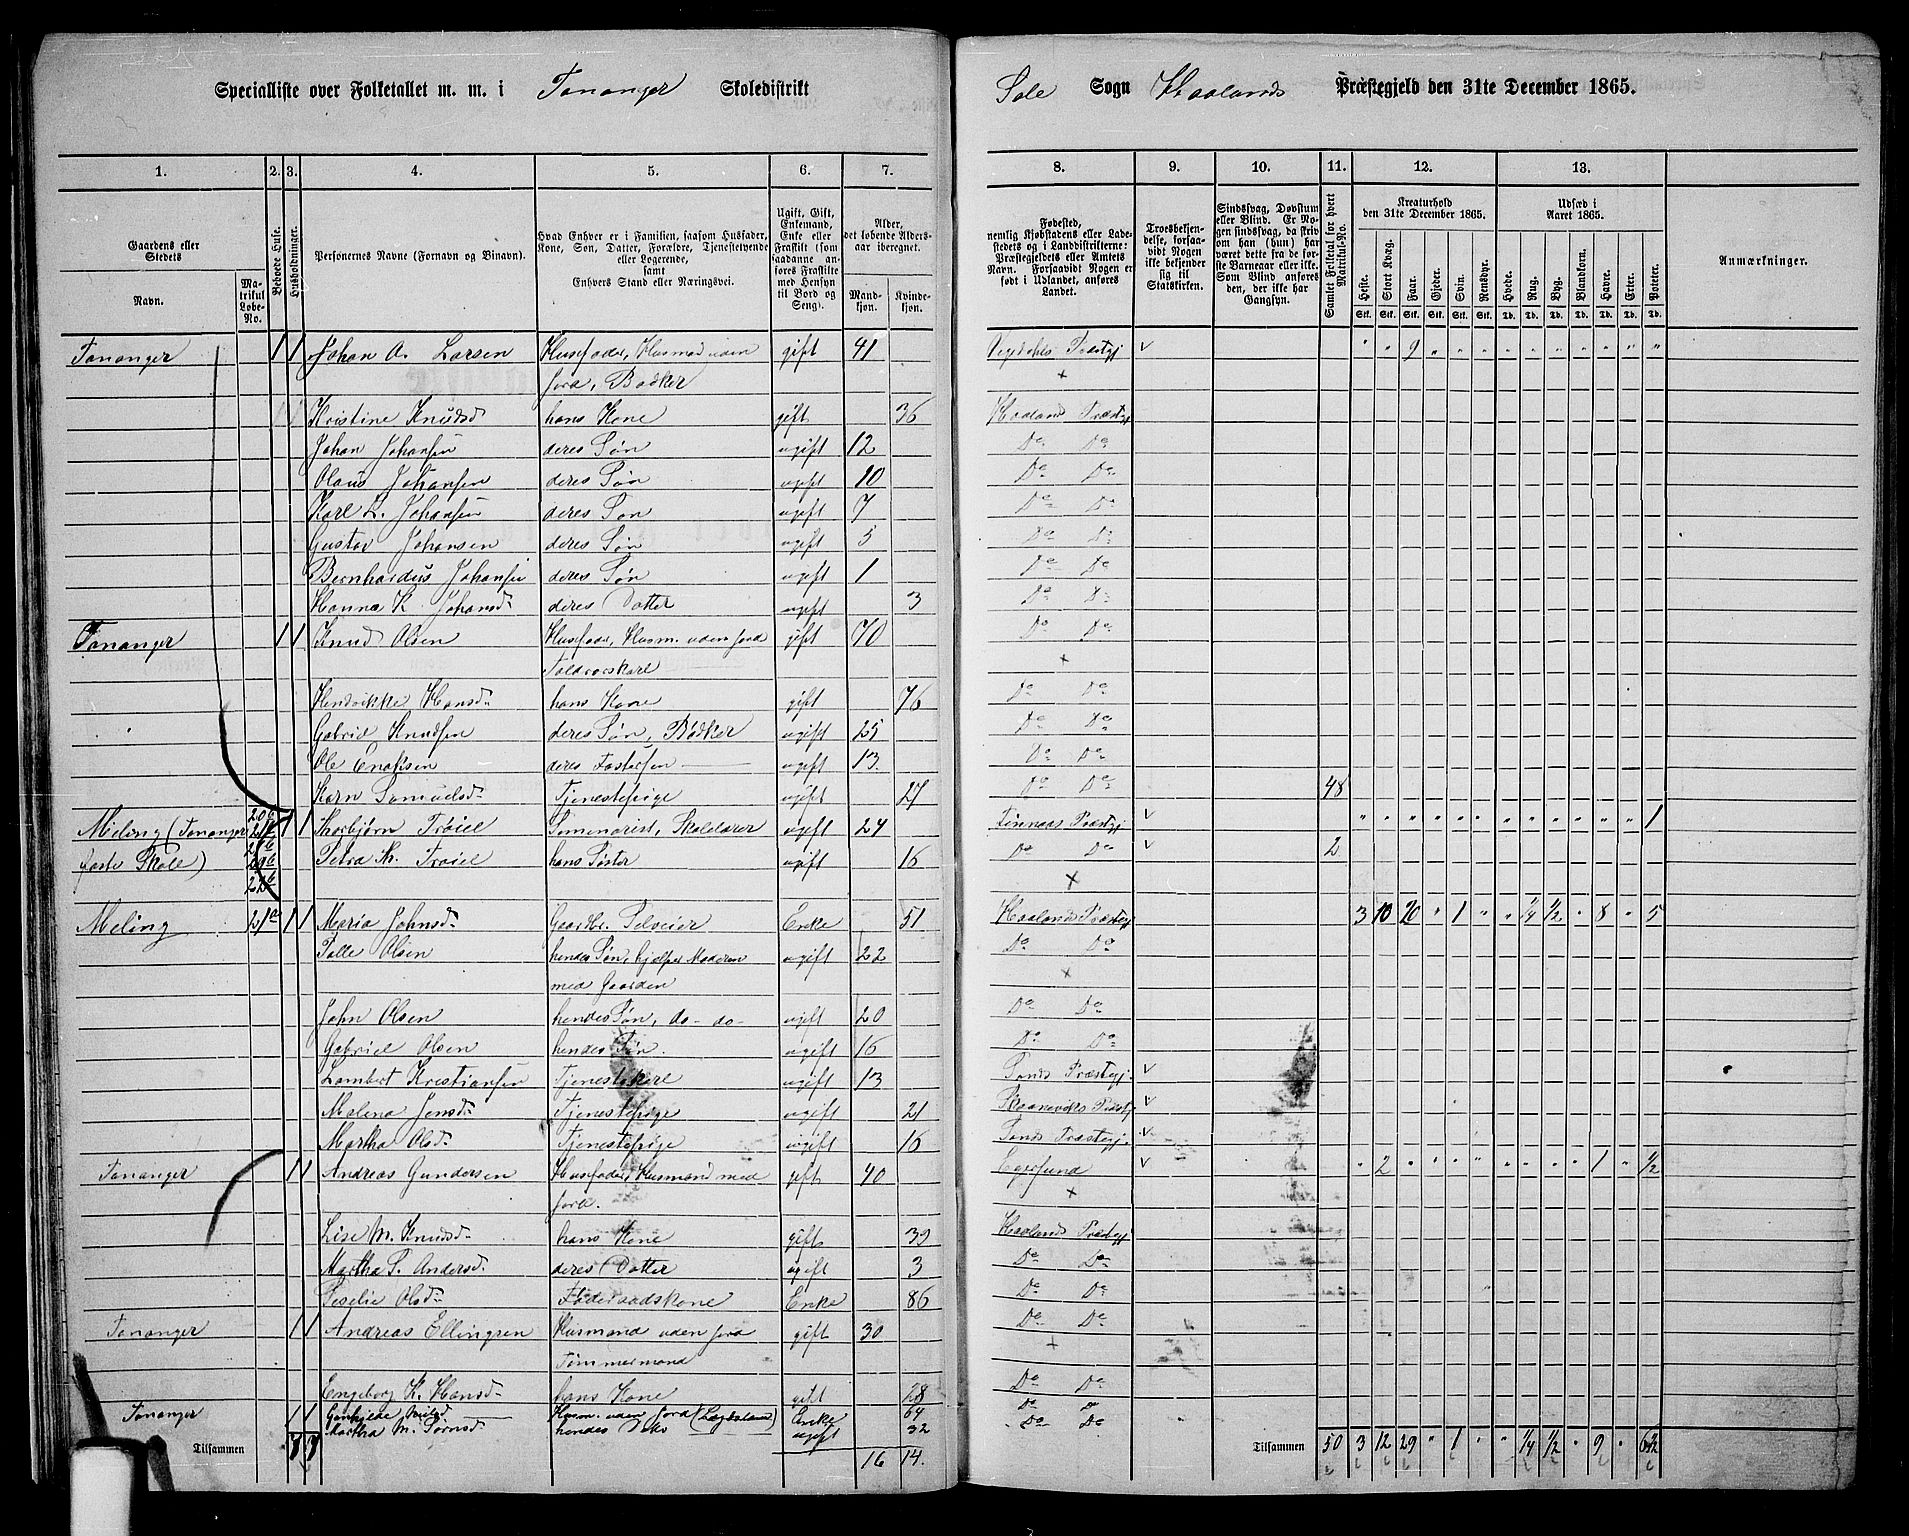 Specialliste over Folketallet m. m. i Tananger Skoledistrikt
Sole Sogn Haalands Præstegjeld den 31te December 1865.
1. 2. 3. 4. 5. 6. 7. 8. 9. 10. 11. 12. 13.
Gaardens eller Stedets
Navn.
Matrikul Løbe-No.
Beboede Huse.
Husholdninger.
Personernes Navne (Fornavn og Binavn).
Hvad Enhver er i Familien, saasom Husfader, Kone, Søn, Datter, Forældre, Tjenestetyende eller Logerende, samt Enhvers Stand eller Næringsvei.
Ugift, Gift, Enkemand, Enke eller Fraskilt (som saadanne anføres Fraskilte med Hensyn til Bord og Seng).
Alder, det løbende Alders-aar iberegnet.
Mandkjøn. Kvindekjøn.
Fødested, nemlig Kjøbstadens eller Ladestedets og i Landdistrikterne: Præstegjeldets eller Amtets Navn. Forsaavidt Nogen er født i Udlandet, anføres Landet.
Troesbekjendelse, forsaavidt Nogen ikke bekjender sig til Statskirken.
Sindssvag, Døvstum eller Blind. Er Nogen sindssvag, da skrives om han (hun) har været dette fra de første Barneaar eller ikke. Som Blind anføres den, der ikke har Gangsyn.
Samlet Folketal for hvert Matrikul-No.
Kreaturhold den 31te December 1865.
Udsæd i Aaret 1865.
Anmærkninger.
Heste. Stort Kvæg. Faar. Gjeder. Svin. Rensdyr. Hvede. Rug. Byg. Blandkorn. Havre. Erter. Poteter.
Stk. Stk. Stk. Stk. Stk. Stk. Td. Td. Td. Td. Td. Td. Td.
Tananger 1 1 Johan A. Larsen Husfader, Husmand uden gift 41 Præstgj v " " 9 " " " " " " " " " "
Jord, Bødker ×
Kristine Knudsd hans Kone gift 36 Haaland Præstgj
Johan Johansen deres Søn ugift 12 Do Do
Olaus Johansen deres Søn ugift 10 Do Do
Karl L. Johansen deres Søn ugift 7 Do Do
Gustav Johansen deres Søn ugift 5 Do Do
Bernhardus Johansen deres Søn ugift 1 Do Do
Hanna K. Johansd. deres Datter ugift 3 Do Do
Tananger 1 1 Knud Olsen Husfader, Husm. uden Jord gift 70 Do Do
×
Hendrikke Hansd. hans Kone gift 76 Do Do
Gabriel Knudsen deres Søn, Bødker ugift 25 Do Do
Ole Enoksen deres Fostersøn ugift 13 Do Do
Karn Samuelsd. Tjenestepige ugift 27 Do Do 48
Meling (Tananger 20b 21b 1 1 Thorbjørn Trøiel Seminarist, Skolelærer ugift 24 Finnaas Præstgj v " " " " " " " " " " " " 1
faste Skole) Petra M. Trøiel hans Søster ugift 16 Do Do v 2
22b ×
Meling 21a 1 1 Maria Johnsd. Gaardbr. Selveier Enke 51 Haalands Præstegj 3 10 20 " 1 " " 1/4 1/2 " 8 " 5
Tolle Olsen hendes Søn, hjælper Moderen ugift 22 Do Do
med Gaarden ×
John Olsen hendes Søn, do- do- ugift 20 Do Do
Gabriel Olsen hendes Søn. ugift 16 Do Do
Lambert Kristiansen Tjenestekarl ugift 13 Sands Præstegj. v
Malena Jensd. Tjenestepige ugift 21 Skaaneviks Præstgj v
Martha Olsd. Tjenestepige ugift 16 Sands Præstegj. v
Tananger 1 1 Andreas Gundersen Husfader, Husmand med gift 40 Egersund v " 2 " " " " " " " " 1 " 1/2
Jord. ×
Lise M. Knudsd. hans Kone gift 39 Haalands Præstgj
Martha S. Andersd. deres Datter ugift 3 Do Do
Olsd. Føderaadskone Enke 86 Do Do
Tananger 1 1 Andreas Ellingsen Husmand uden Jord gift 30 Do Do
Tømmermand ×
Engeborg K. Hansd. hans Kone gift 28 Do Do
Tananger 1 1 Gunhilde Husm. uden Jord Enke 64 Do Do
Martha M. hendes ugift 32 Do Do
Tilsammen 7 7 16 14.
Tilsammen 50 3 12 29 " 1 " " 1/4 1/2 " 9 " 6 1/2